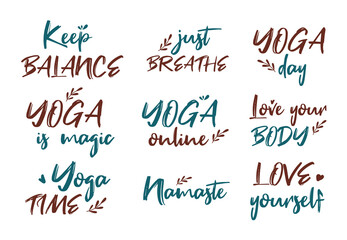 Keep
BALANCE
just
BREATHE
YOGA
day
YOGA
is magic
YOGA
online
Love your
BODY
Yoga
TIME
Namaste
LOVE
yourself